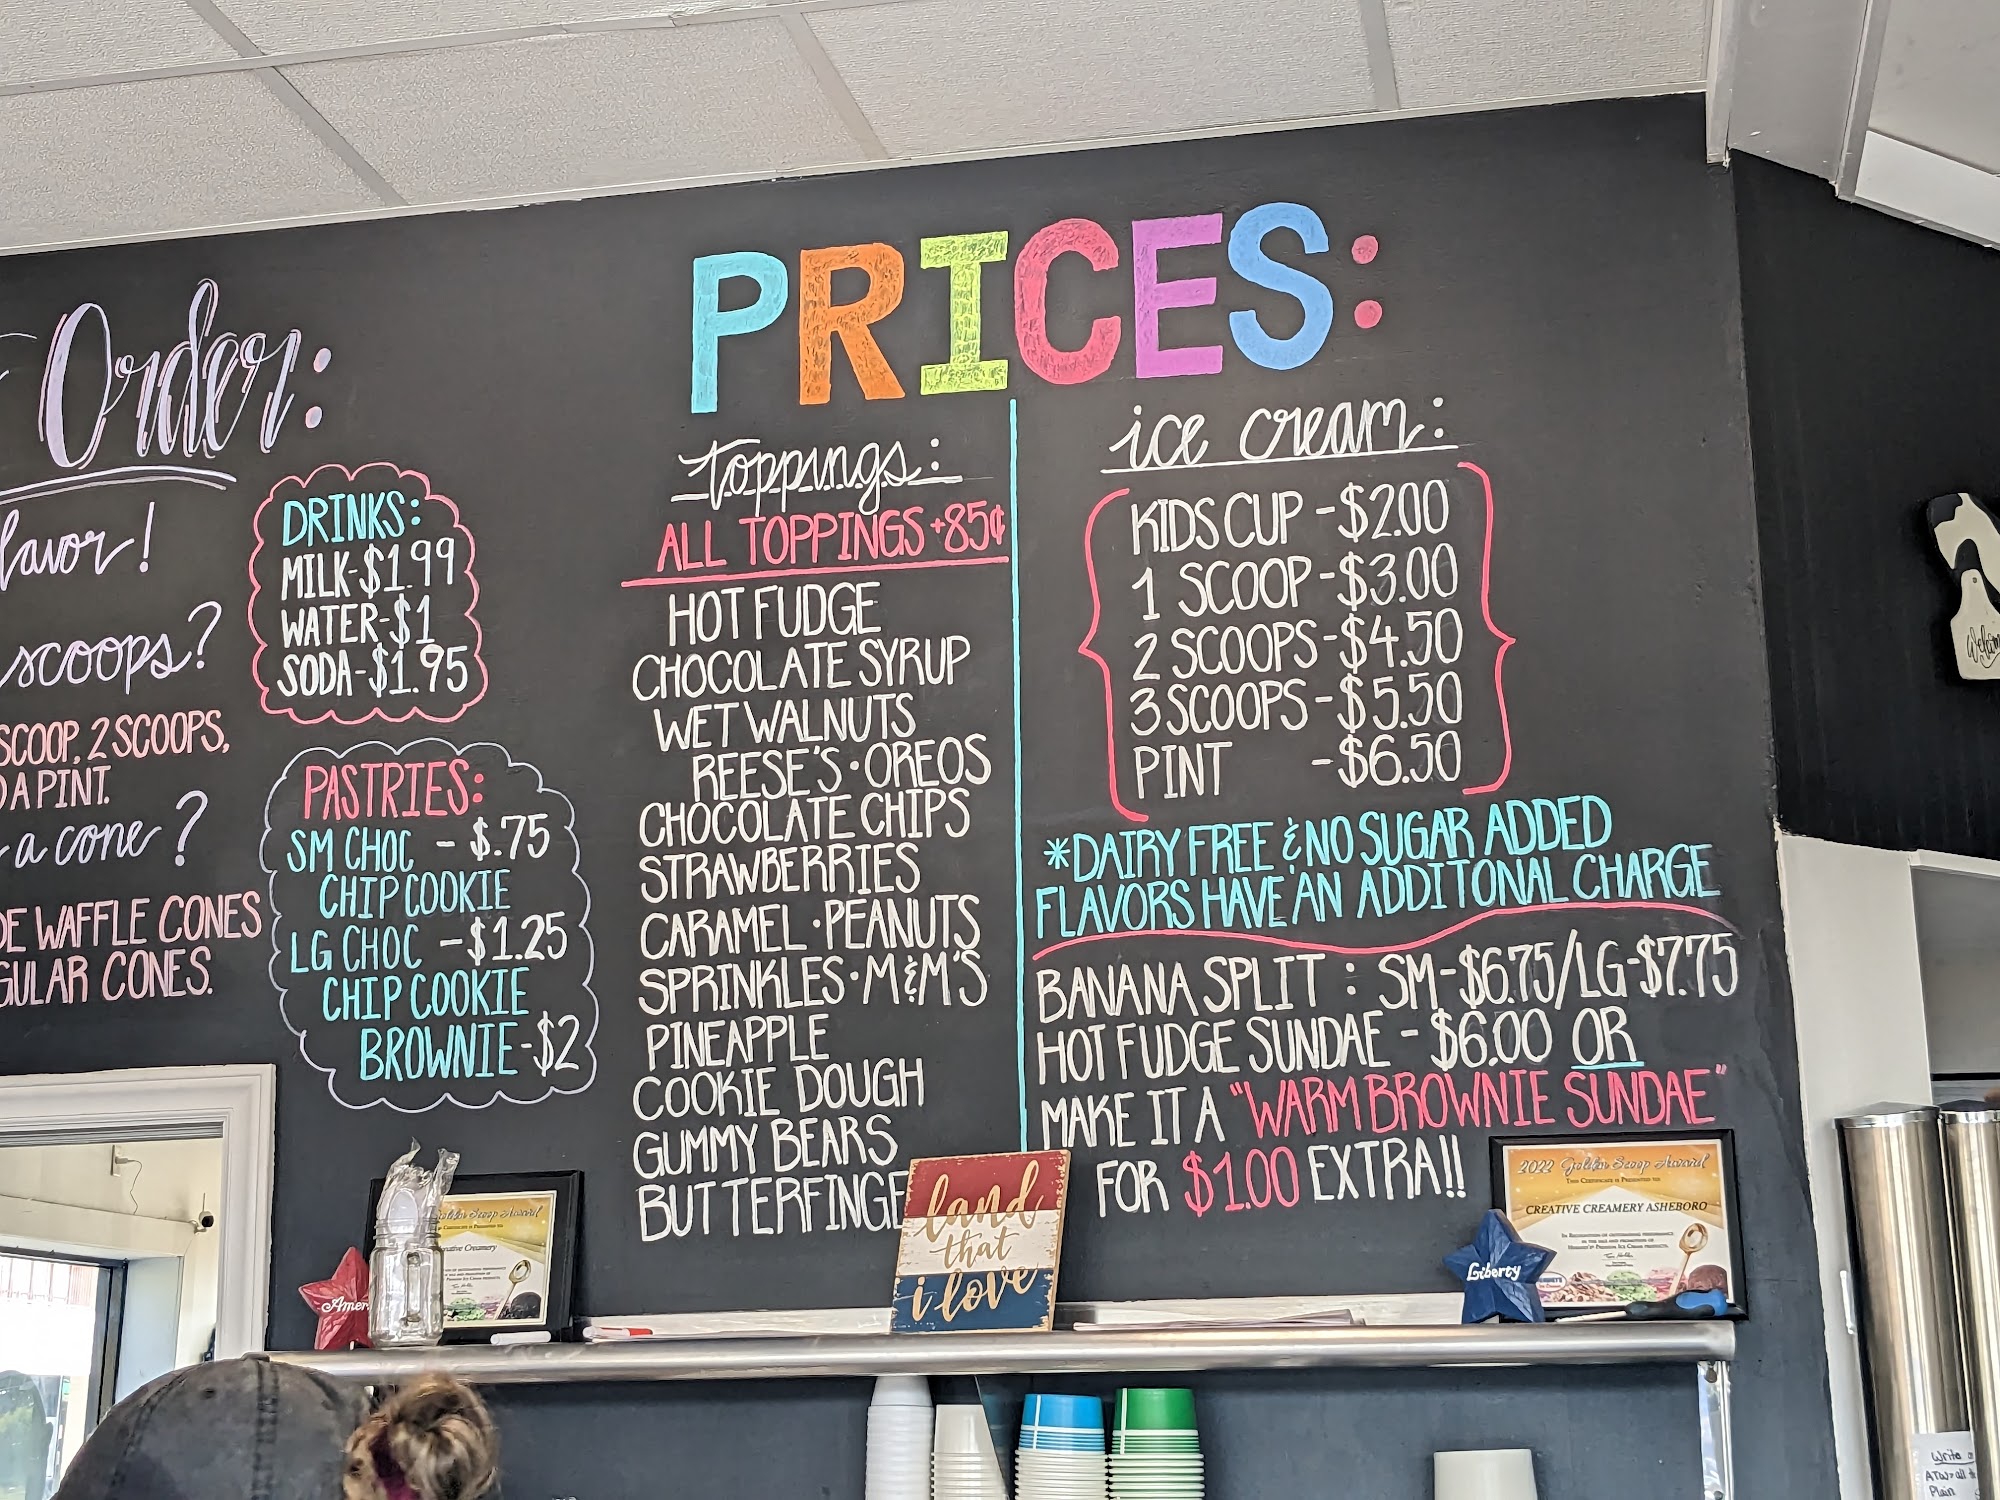 Order:
flavor!
scoops?
SCOOP, 2 SCOOPS,
A PINT.
a cone?
WAFFLE CONES
CONES.
DRINKS:
MILK-$1.99
WATER-$1
SODA-$1.95
PASTRIES:
SM CHOC - $.75
CHIP COOKIE
LG CHOC - $1.25
CHIP COOKIE
BROWNIE-$2
PRICES:
toppings:
ALL TOPPINGS +85¢
HOT FUDGE
CHOCOLATE SYRUP
WET WALNUTS
REESE'S • OREOS
CHOCOLATE CHIPS
STRAWBERRIES
CARAMEL • PEANUTS
SPRINKLES • M&M'S
PINEAPPLE
COOKIE DOUGH
GUMMY BEARS
BUTTERFINGE
ice cream:
KIDS CUP - $2.00
1 SCOOP - $3.00
2 SCOOPS - $4.50
3 SCOOPS - $5.50
PINT - $6.50
*DAIRY FREE & NO SUGAR ADDED
FLAVORS HAVE AN ADDITONAL CHARGE
BANANA SPLIT : SM-$6.75/LG-$7.75
HOT FUDGE SUNDAE - $6.00 OR
MAKE IT A "WARM BROWNIE SUNDAE"
FOR $1.00 EXTRA!!
land
that
i love
Amer
Golden Scoop Award
Creamery
Liberty
2022 Golden Scoop Award
THIS CERTIFICATE IS PRESENTED TO:
CREATIVE CREAMERY ASHEBORO
IN RECOGNITION OF OUTSTANDING PERFORMANCE
IN THE SALE AND PROMOTION OF
HERSHEY'S® PREMIUM ICE CREAM PRODUCTS.
Write
Plain